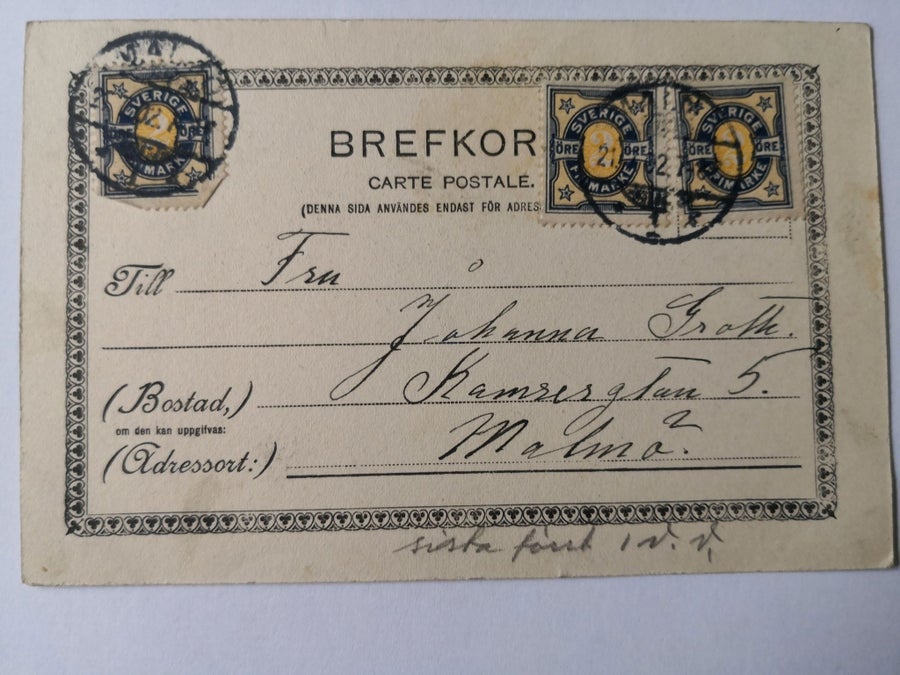 SVERIGE
2
ÖRE
FRIMÄRKE
SVERIGE
ÖRE 2 ÖRE
FRIMÄRKE
SVERIGE
ÖRE 2 ÖRE
FRIMÄRKE
BREFKOR
CARTE POSTALE.
(DENNA SIDA ANVÄNDES ENDAST FÖR ADRES
Till Fru
Johanna Groth.
(Bostad,) 5.
om den kan uppgifvas:
(Adressort:) Malmö.
sista